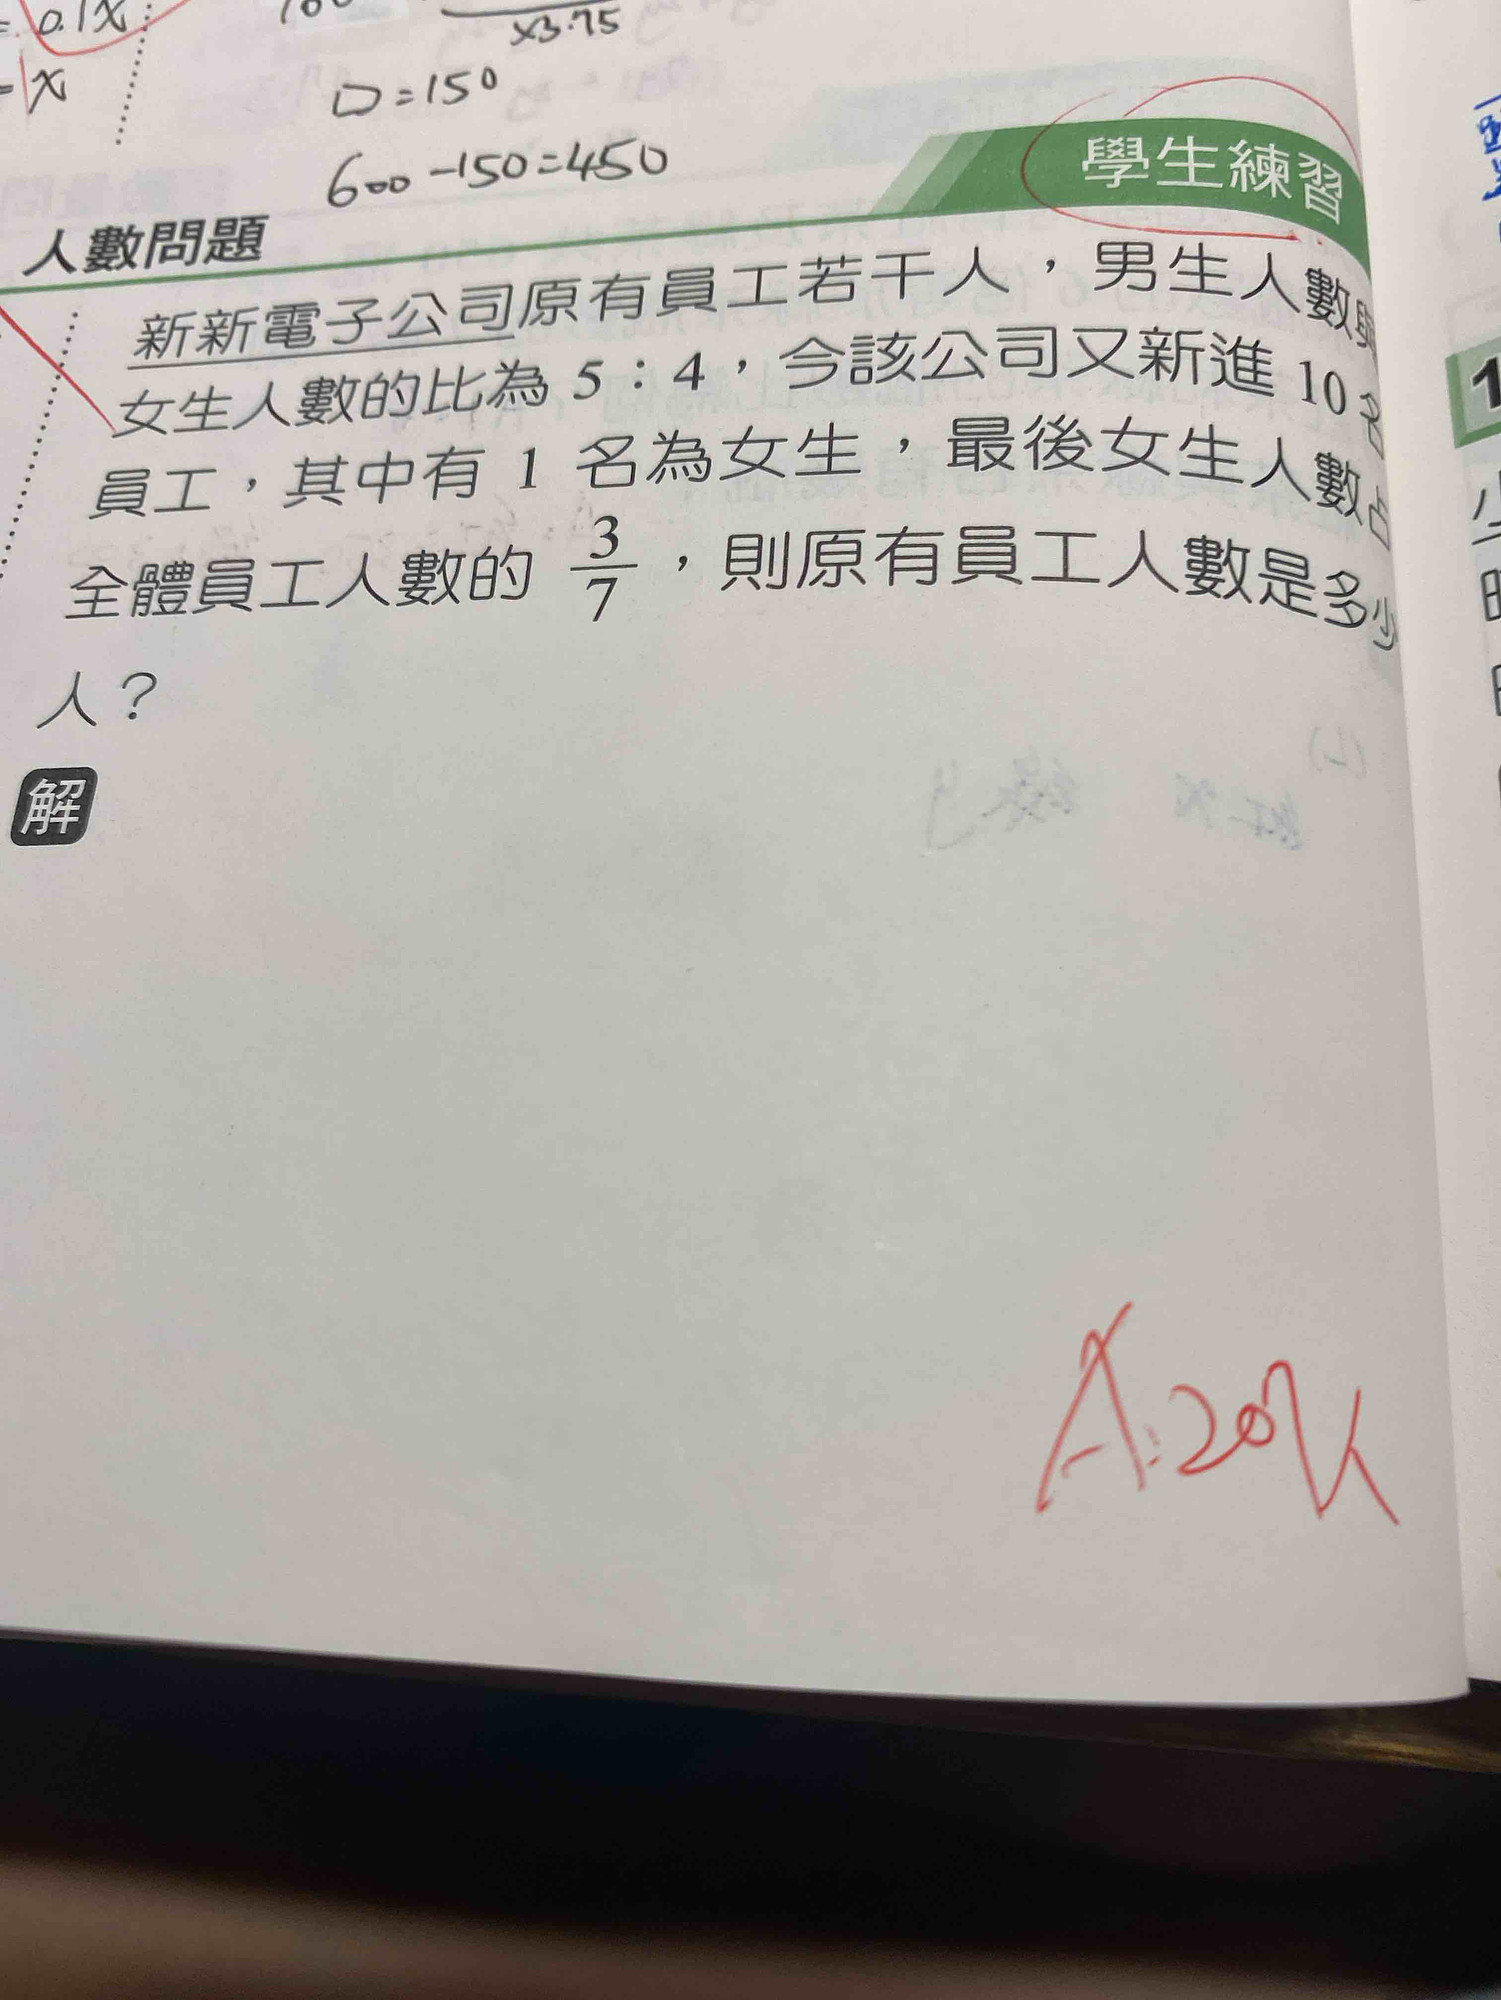 = 0.1x
x3.75
- x
□=150
600-150=450
學生練習
人數問題
新新電子公司原有員工若干人，男生人數與
女生人數的比為 5：4，今該公司又新進 10 名
員工，其中有 1 名為女生，最後女生人數占
全體員工人數的 3/7，則原有員工人數是多少
人？
解
1
A:207人